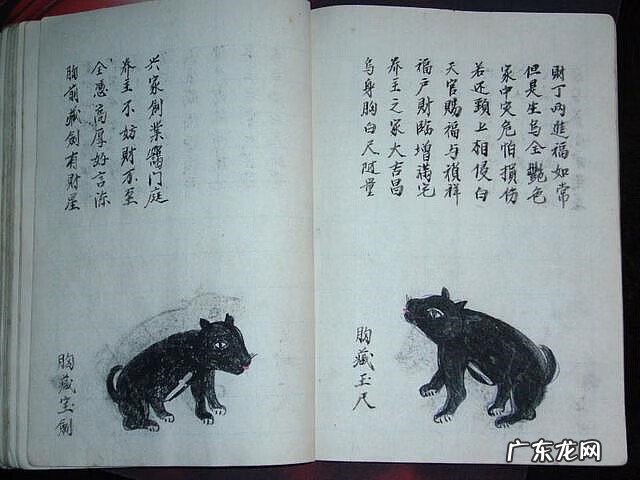 胸前藏劍有財星
全憑高厚好言陈
养主不妨財不至
兴家創業耀门庭
胸藏宝剑
乌身胸白尺随量
养主之家大吉昌
福户財臨增满宅
天官賜福与禎祥
若还頸上相侵白
家中灾危怕損伤
但是生乌全艷色
財丁両進福如常
胸藏玉尺
广东龙网